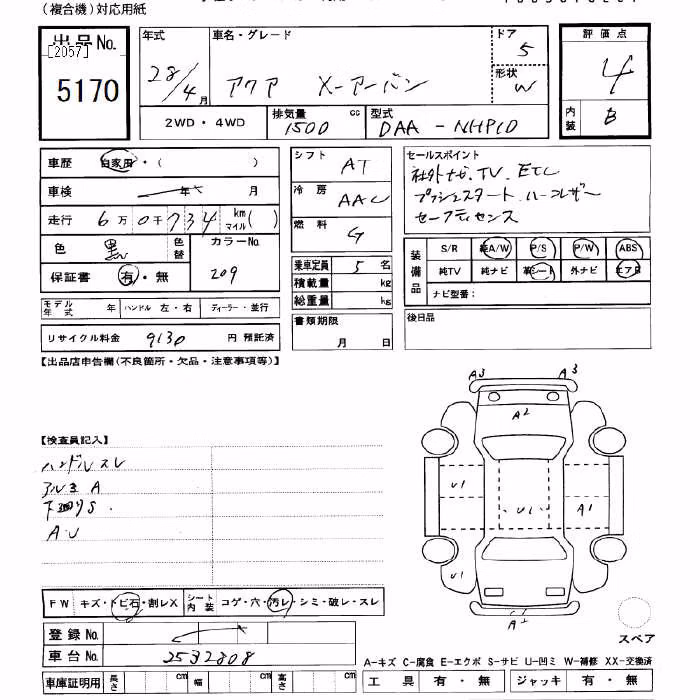 (複合機)対応用紙
出品No.
[2057]
5170
年式
28/4月
車名・グレード
アクア X-アーバン
ドア
5
形状
W
評価点
4
内装
B
2WD・4WD
排気量 cc
1500
型式
DAA-NHP10
車歴 自家用・( )
車検 年 月
走行 6万0千734 km マイル( )
色 黒 色替
カラーNo.
209
保証書 有・無
モデル年式 年 ハンドル 左・右 ディーラー・並行
リサイクル料金 9130 円 預託済
シフト AT
冷房 AAC
燃料 G
乗車定員 5 名
積載量 kg
総重量 kg
書類期限
月 日
セールスポイント
社外ナビ、TV、ETC
プッシュスタート、ハーフレザー
セーフティセンス
装備品
S/R 純A/W P/S P/W ABS
純TV 純ナビ 革シート 外ナビ エアB
ナビ型番:
後日品
【出品店申告欄(不良箇所・欠品・注意事項等)】
【検査員記入】
ハンドルスレ
アルミA
下回りS
A・U
A3 A3
A2
U1 U1 A1
U1
FW キズ・トビ石・割レX シート内装 コゲ・穴・汚レ・シミ・破レ・スレ
登録No.
車台No. 2532808
車庫証明用 長さ cm 幅 cm 高さ cm
スペア
A-キズ C-腐食 E-エクボ S-サビ U-凹ミ W-補修 XX-交換済
工具 有・無 ジャッキ 有・無